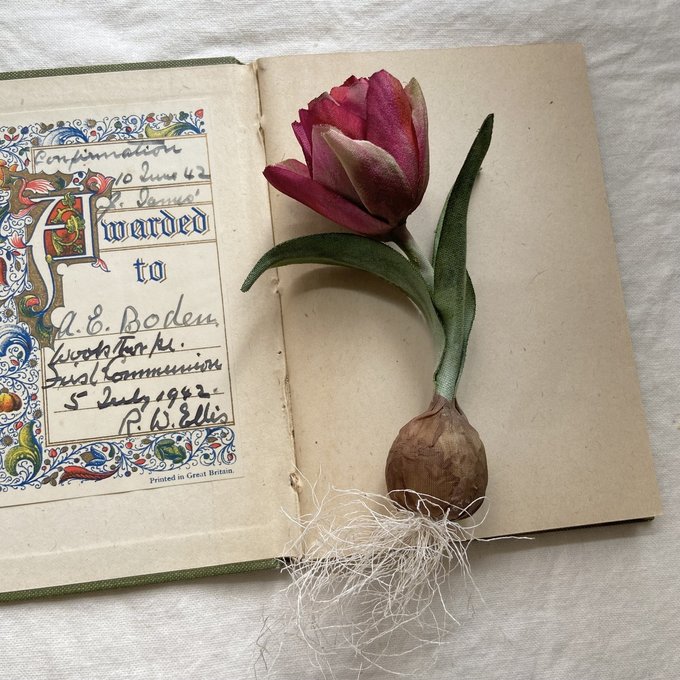 Confirmation
10 June 42
St. James'
Awarded
to
A. E. Boden.
Woolsthorpe.
First Communion
5 July 1942.
R. W. Ellis
Printed in Great Britain.